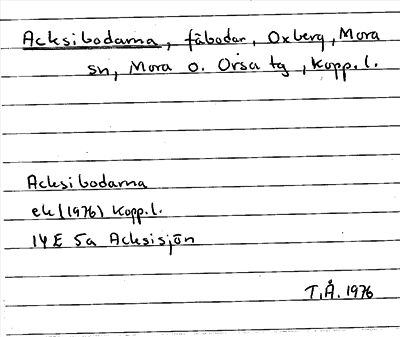 Acksibodarna, fäbodar, Oxberg, Mora
sn, Mora o. Orsa tg, Kopp.l.
Acksibodarna
ek (1976) Kopp.l.
14E 5a Acksisjön
T.Å. 1976